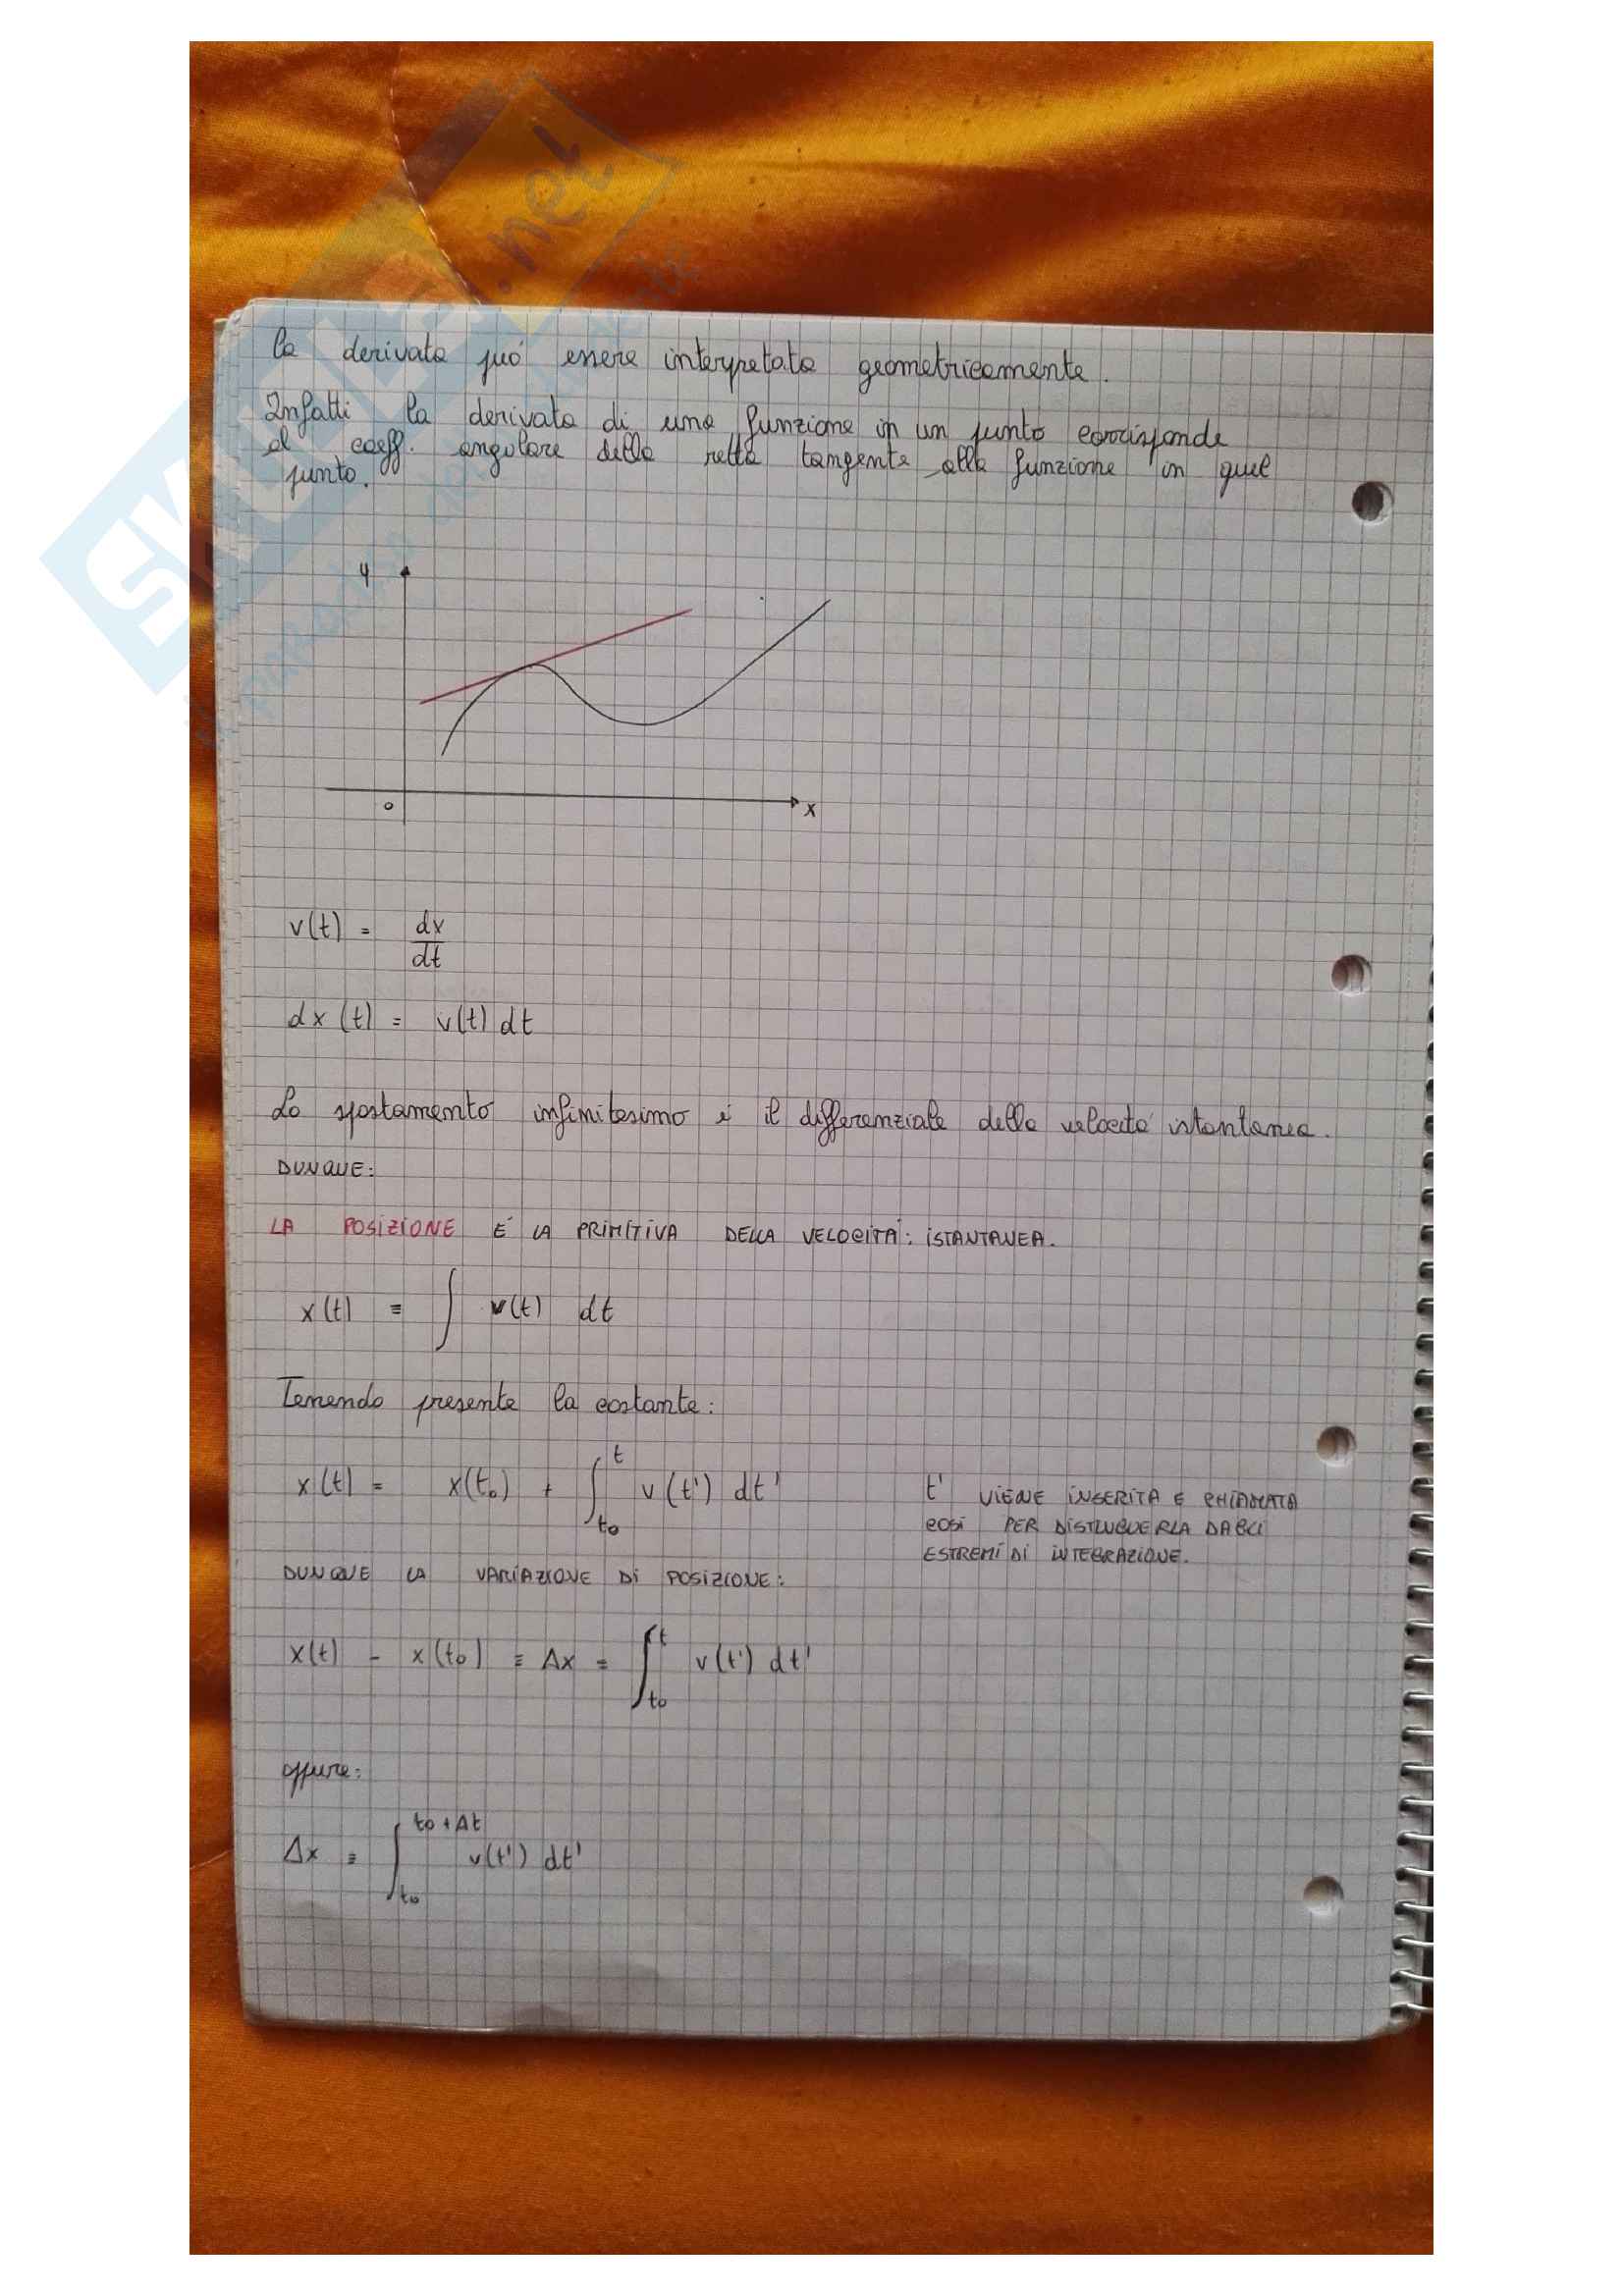 la derivata può essere interpretata geometricamente.
Infatti la derivata di una funzione in un punto corrisponde
al coeff. angolare della retta tangente alla funzione in quel
punto.
y
0
x
v(t) = dx/dt
dx(t) = v(t) dt
Lo spostamento infinitesimo è il differenziale della velocità istantanea.
DUNQUE:
LA POSIZIONE È LA PRIMITIVA DELLA VELOCITÀ: ISTANTANEA.
x(t) = ∫ v(t) dt
Tenendo presente la costante:
x(t) = x(t₀) + ∫_{t₀}^{t} v(t') dt'
t' VIENE INSERITA E CHIAMATA
COSÌ PER DISTINGUERLA DAGLI
ESTREMI DI INTEGRAZIONE.
DUNQUE LA VARIAZIONE DI POSIZIONE:
x(t) - x(t₀) = Δx = ∫_{t₀}^{t} v(t') dt'
oppure:
Δx = ∫_{t₀}^{t₀+Δt} v(t') dt'
SKUOLA.net